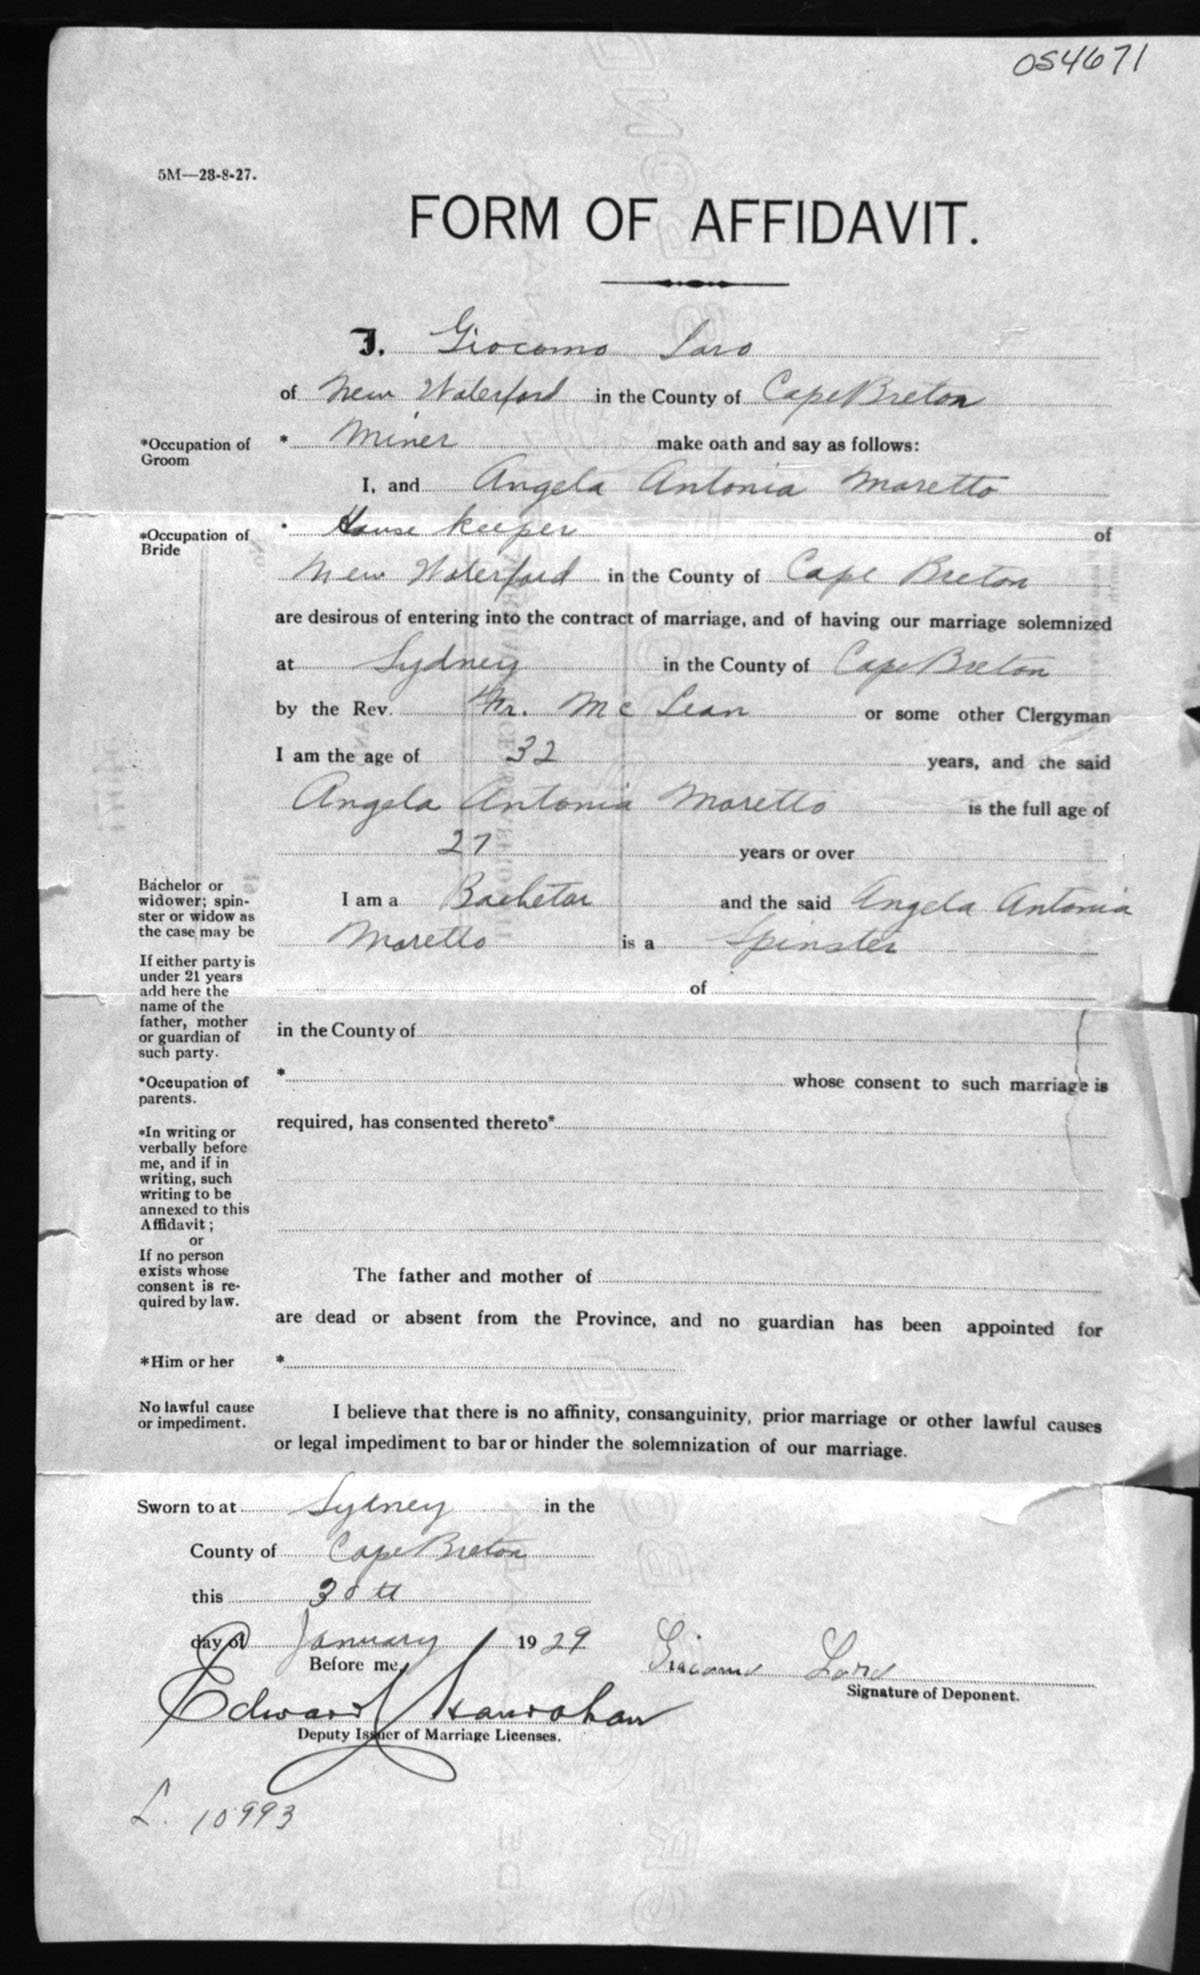 054671
5M—23-8-27.
FORM OF AFFIDAVIT.
I. Giocomo Loro
of New Waterford in the County of Cape Breton
*Occupation of Groom * Miner make oath and say as follows:
I, and Angela Antonia Maretto
*Occupation of Bride * House keeper of
New Waterford in the County of Cape Breton
are desirous of entering into the contract of marriage, and of having our marriage solemnized
at Sydney in the County of Cape Breton
by the Rev. Fr. Mc Lean or some other Clergyman
I am the age of 32 years, and the said
Angela Antonia Maretto is the full age of
27 years or over
Bachelor or widower; spinster or widow as the case may be
I am a Bachelor and the said Angela Antonia
Maretto is a Spinster
If either party is under 21 years add here the name of the father, mother or guardian of such party.
of
in the County of
*Occupation of parents.
* whose consent to such marriage is
required, has consented thereto*
*In writing or verbally before me, and if in writing, such writing to be annexed to this Affidavit;
or
If no person exists whose consent is required by law.
The father and mother of
are dead or absent from the Province, and no guardian has been appointed for
*Him or her *
No lawful cause or impediment.
I believe that there is no affinity, consanguinity, prior marriage or other lawful causes
or legal impediment to bar or hinder the solemnization of our marriage.
Sworn to at Sydney in the
County of Cape Breton
this 30th
day of January 1929
Before me,
Giacomo Loro
Signature of Deponent.
Edward Hanrahan
Deputy Issuer of Marriage Licenses.
L. 10993